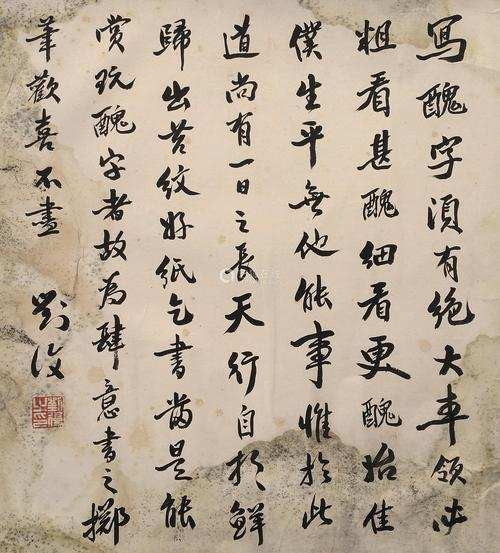 寫醜字須有絕大本領必
粗看甚醜細看更醜始佳
僕生平無他能事惟於此
道尚有一日之長天行自朝鮮
歸出苔紋好紙乞書當是能
賞玩醜字者故為肆意書之擲
筆歡喜不盡
劉復